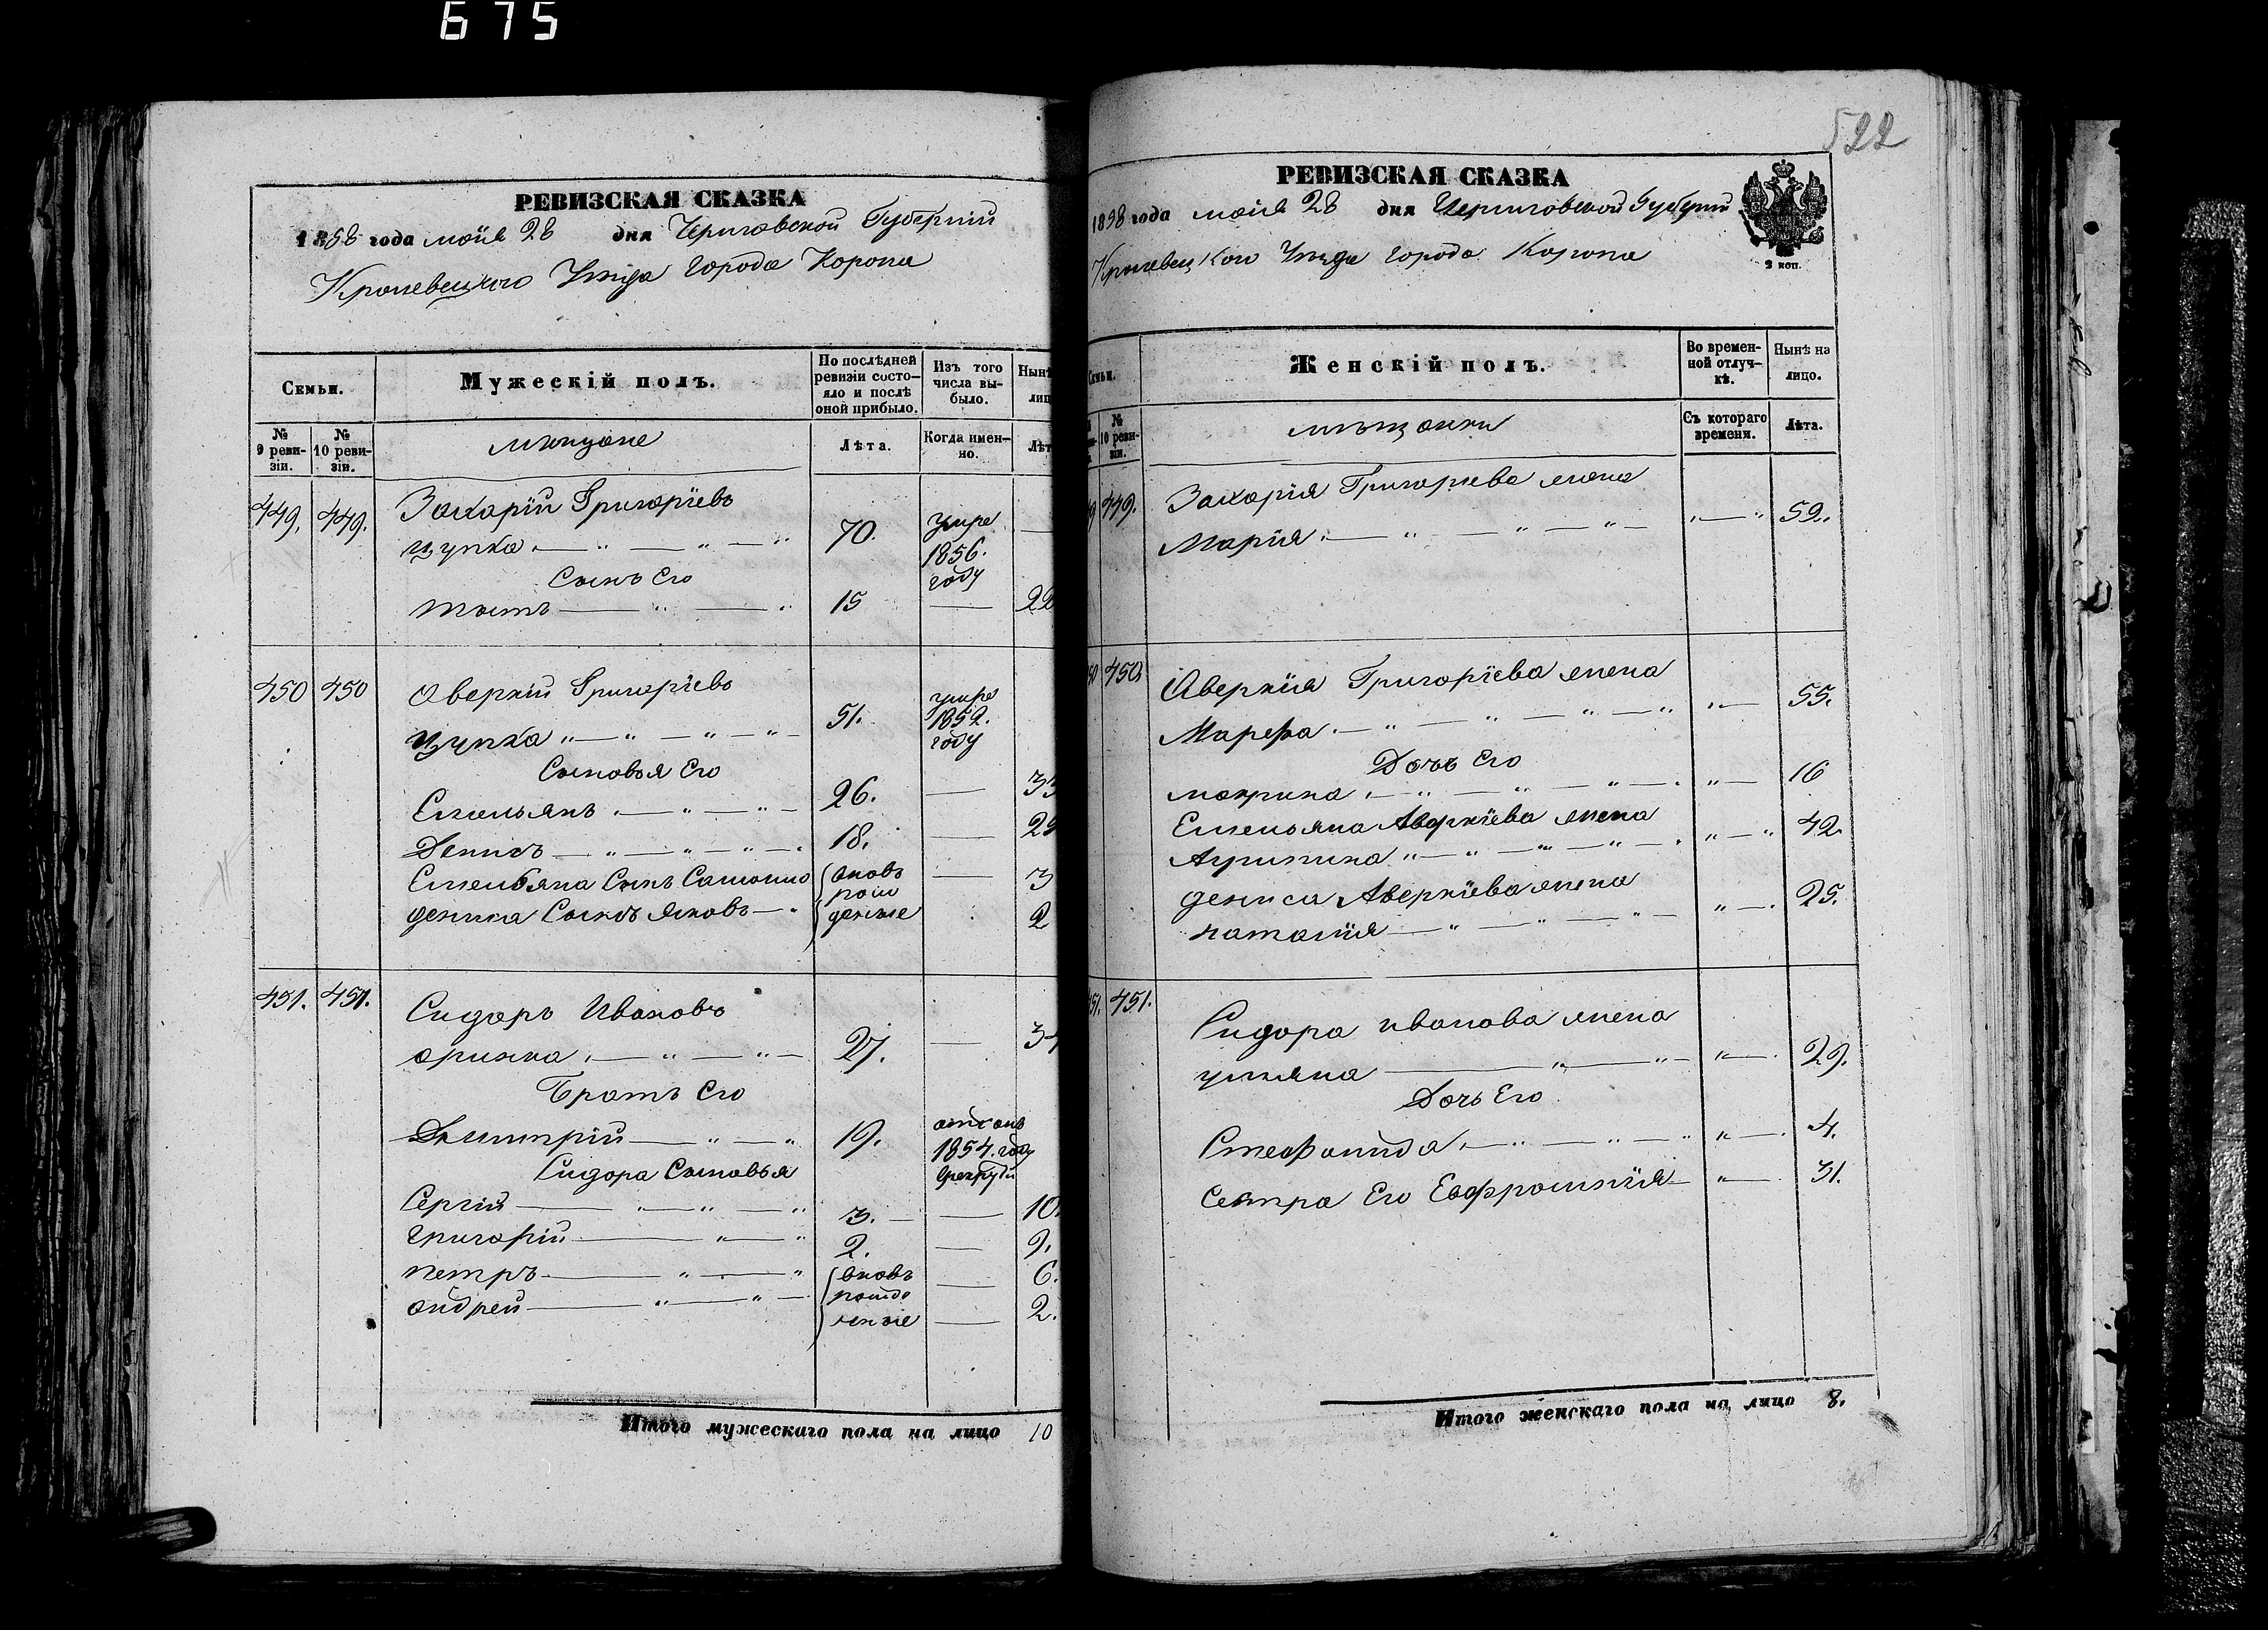 675
РЕВИЗСКАЯ СКАЗКА
1858 года маія 28 дня Черниговской Губерніи
Кролевецкого Уезда города Коропа
Семьи.
Мужескій полъ.
По послѣдней ревизіи состояло и послѣ оной прибыло.
Изъ того числа выбыло.
№ 9 ревизіи.
№ 10 ревизіи.
мещане
Лѣта.
Когда именно.
449. 449. Захарій Григоріевъ
цупка 70. умре 1856. году
Сынъ Его
15 — 22
450 450 Аверкій Григоріевъ
цупка 51. умре 1852. году
Сыновья Его
Емельянъ 26. —
Денисъ 18. —
Емельяна Сынъ — 3
Сынъ Яковъ 2
вновь рожденые
451. 451. Сидоръ Ивановъ
27. —
Братъ Его
Дмитрій 19. 1854. году
Сидора Сыновья
Сергій 3. — 10.
Григорій 2. — 9.
Петръ — 6.
Андрей — 2.
вновь
Итого мужескаго пола на лицо 10
522
РЕВИЗСКАЯ СКАЗКА
1858 года маія 28 дня Черниговской Губерніи
Кролевецкого Уезда города Коропа
2 коп.
Женскій полъ.
Во временной отлучкѣ.
Нынѣ на лицо.
№ 10 ревизіи.
мѣщанки
Съ котораго времени.
Лѣта.
449. Захарія Григорьева жена
Марія 59.
450. Аверкія Григоріева жена
Марефа 55.
Дочь Его
макрина 16
Емельяна Аверкіева жена
Агрипина 42.
дениса Аверкіева жена
наталія 25.
451. Сидора иванова жена
ульяна 29.
Дочь Его
Стефанида 4.
Сестра Его Евфросинія 31.
Итого женскаго пола на лицо 8.